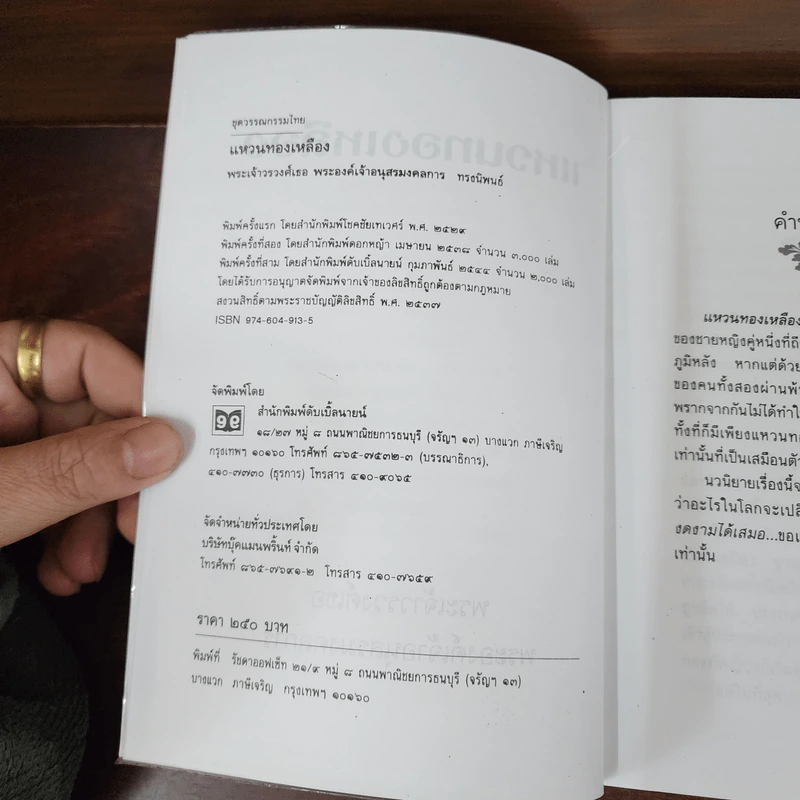 ชุดวรรณกรรมไทย
แหวนทองเหลือง
พระเจ้าวรวงศ์เธอ พระองค์เจ้าอนุสรมงคลการ ทรงนิพนธ์
พิมพ์ครั้งแรก โดยสำนักพิมพ์โชคชัยเทเวศร์ พ.ศ. ๒๕๒๙
พิมพ์ครั้งที่สอง โดยสำนักพิมพ์ดอกหญ้า เมษายน ๒๕๓๘ จำนวน ๓,๐๐๐ เล่ม
พิมพ์ครั้งที่สาม โดยสำนักพิมพ์ดับเบิ้ลนายน์ กุมภาพันธ์ ๒๕๔๔ จำนวน ๒,๐๐๐ เล่ม
โดยได้รับการอนุญาตจัดพิมพ์จากเจ้าของลิขสิทธิ์ถูกต้องตามกฎหมาย
สงวนสิทธิ์ตามพระราชบัญญัติลิขสิทธิ์ พ.ศ. ๒๕๓๗
ISBN 974-604-913-5
จัดพิมพ์โดย
สำนักพิมพ์ดับเบิ้ลนายน์
๑๘/๒๗ หมู่ ๘ ถนนพาณิชยการธนบุรี (จรัญฯ ๑๓) บางแวก ภาษีเจริญ
กรุงเทพฯ ๑๐๑๖๐ โทรศัพท์ ๘๖๕-๗๕๓๒-๓ (บรรณาธิการ),
๔๑๐-๗๗๓๐ (ธุรการ) โทรสาร ๔๑๐-๙๐๖๕
จัดจำหน่ายทั่วประเทศโดย
บริษัทบุ๊คแมนพริ้นท์ จำกัด
โทรศัพท์ ๘๖๕-๗๖๙๑-๒ โทรสาร ๔๑๐-๗๖๕๙
ราคา ๒๕๐ บาท
พิมพ์ที่ รัชดาออฟเซ็ท ๒๑/๙ หมู่ ๘ ถนนพาณิชยการธนบุรี (จรัญฯ ๑๓)
บางแวก ภาษีเจริญ กรุงเทพฯ ๑๐๑๖๐
แหวนทองเหลือง
ของชายหญิงคู่หนึ่งที่
ภูมิหลัง หากแต่ด้วย
ของคนทั้งสองผ่าน
พรากจากกันไม่ได้ทำ
ทั้งที่ก็มีเพียง
เท่านั้นที่เป็นเสมือน
นวนิยายเรื่องนี้
ว่าอะไรในโลกจะ
งดงามได้เสมอ...
เท่านั้น